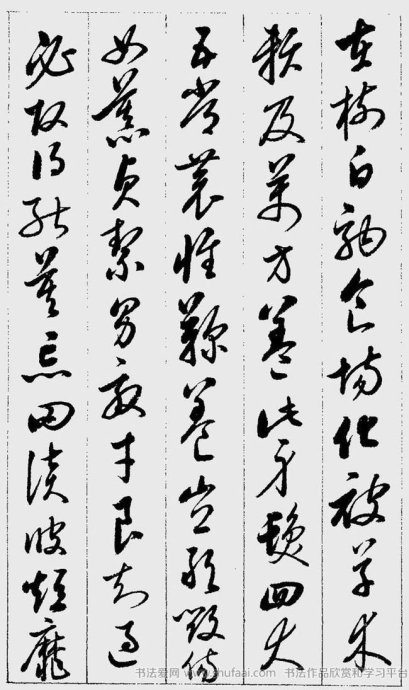 在樹白駒食場化被草木
賴及萬方蓋此身髮四大
五常恭惟鞠養豈敢毀傷
女慕貞絜男效才良知過
必改得能莫忘罔談彼短靡
书法爱网 www.shufaai.com 书法作品欣赏和学习平台